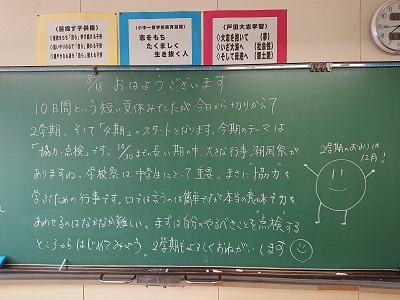 【目指す子供像】
【小中一貫学校教育目標】
志をもち
たくましく
生き抜く人
【戸田大志学習】
◇大志を抱いて（夢）
◇いざ大海へ（社会性）
◇そして母港へ（郷土愛）
8/18 おはようございます
10日間という短い夏休みでしたが今日から切りかえて
2学期、そして「夕期」のスタートとなります。今期のテーマは
「協力・点検」です。10/30までの長い期の中、大きな行事、潮風祭が
ありますね。学校祭は中学生にとって重要。まさに協力を
学ぶための行事です。口で言うのは簡単でも本当の意味で力を
あわせるのはなかなか難しい。まずは自分のやるべきことを点検する
ところからはじめてみよう。2学期もよろしくおねがいします
2学期のおわりは
12月!